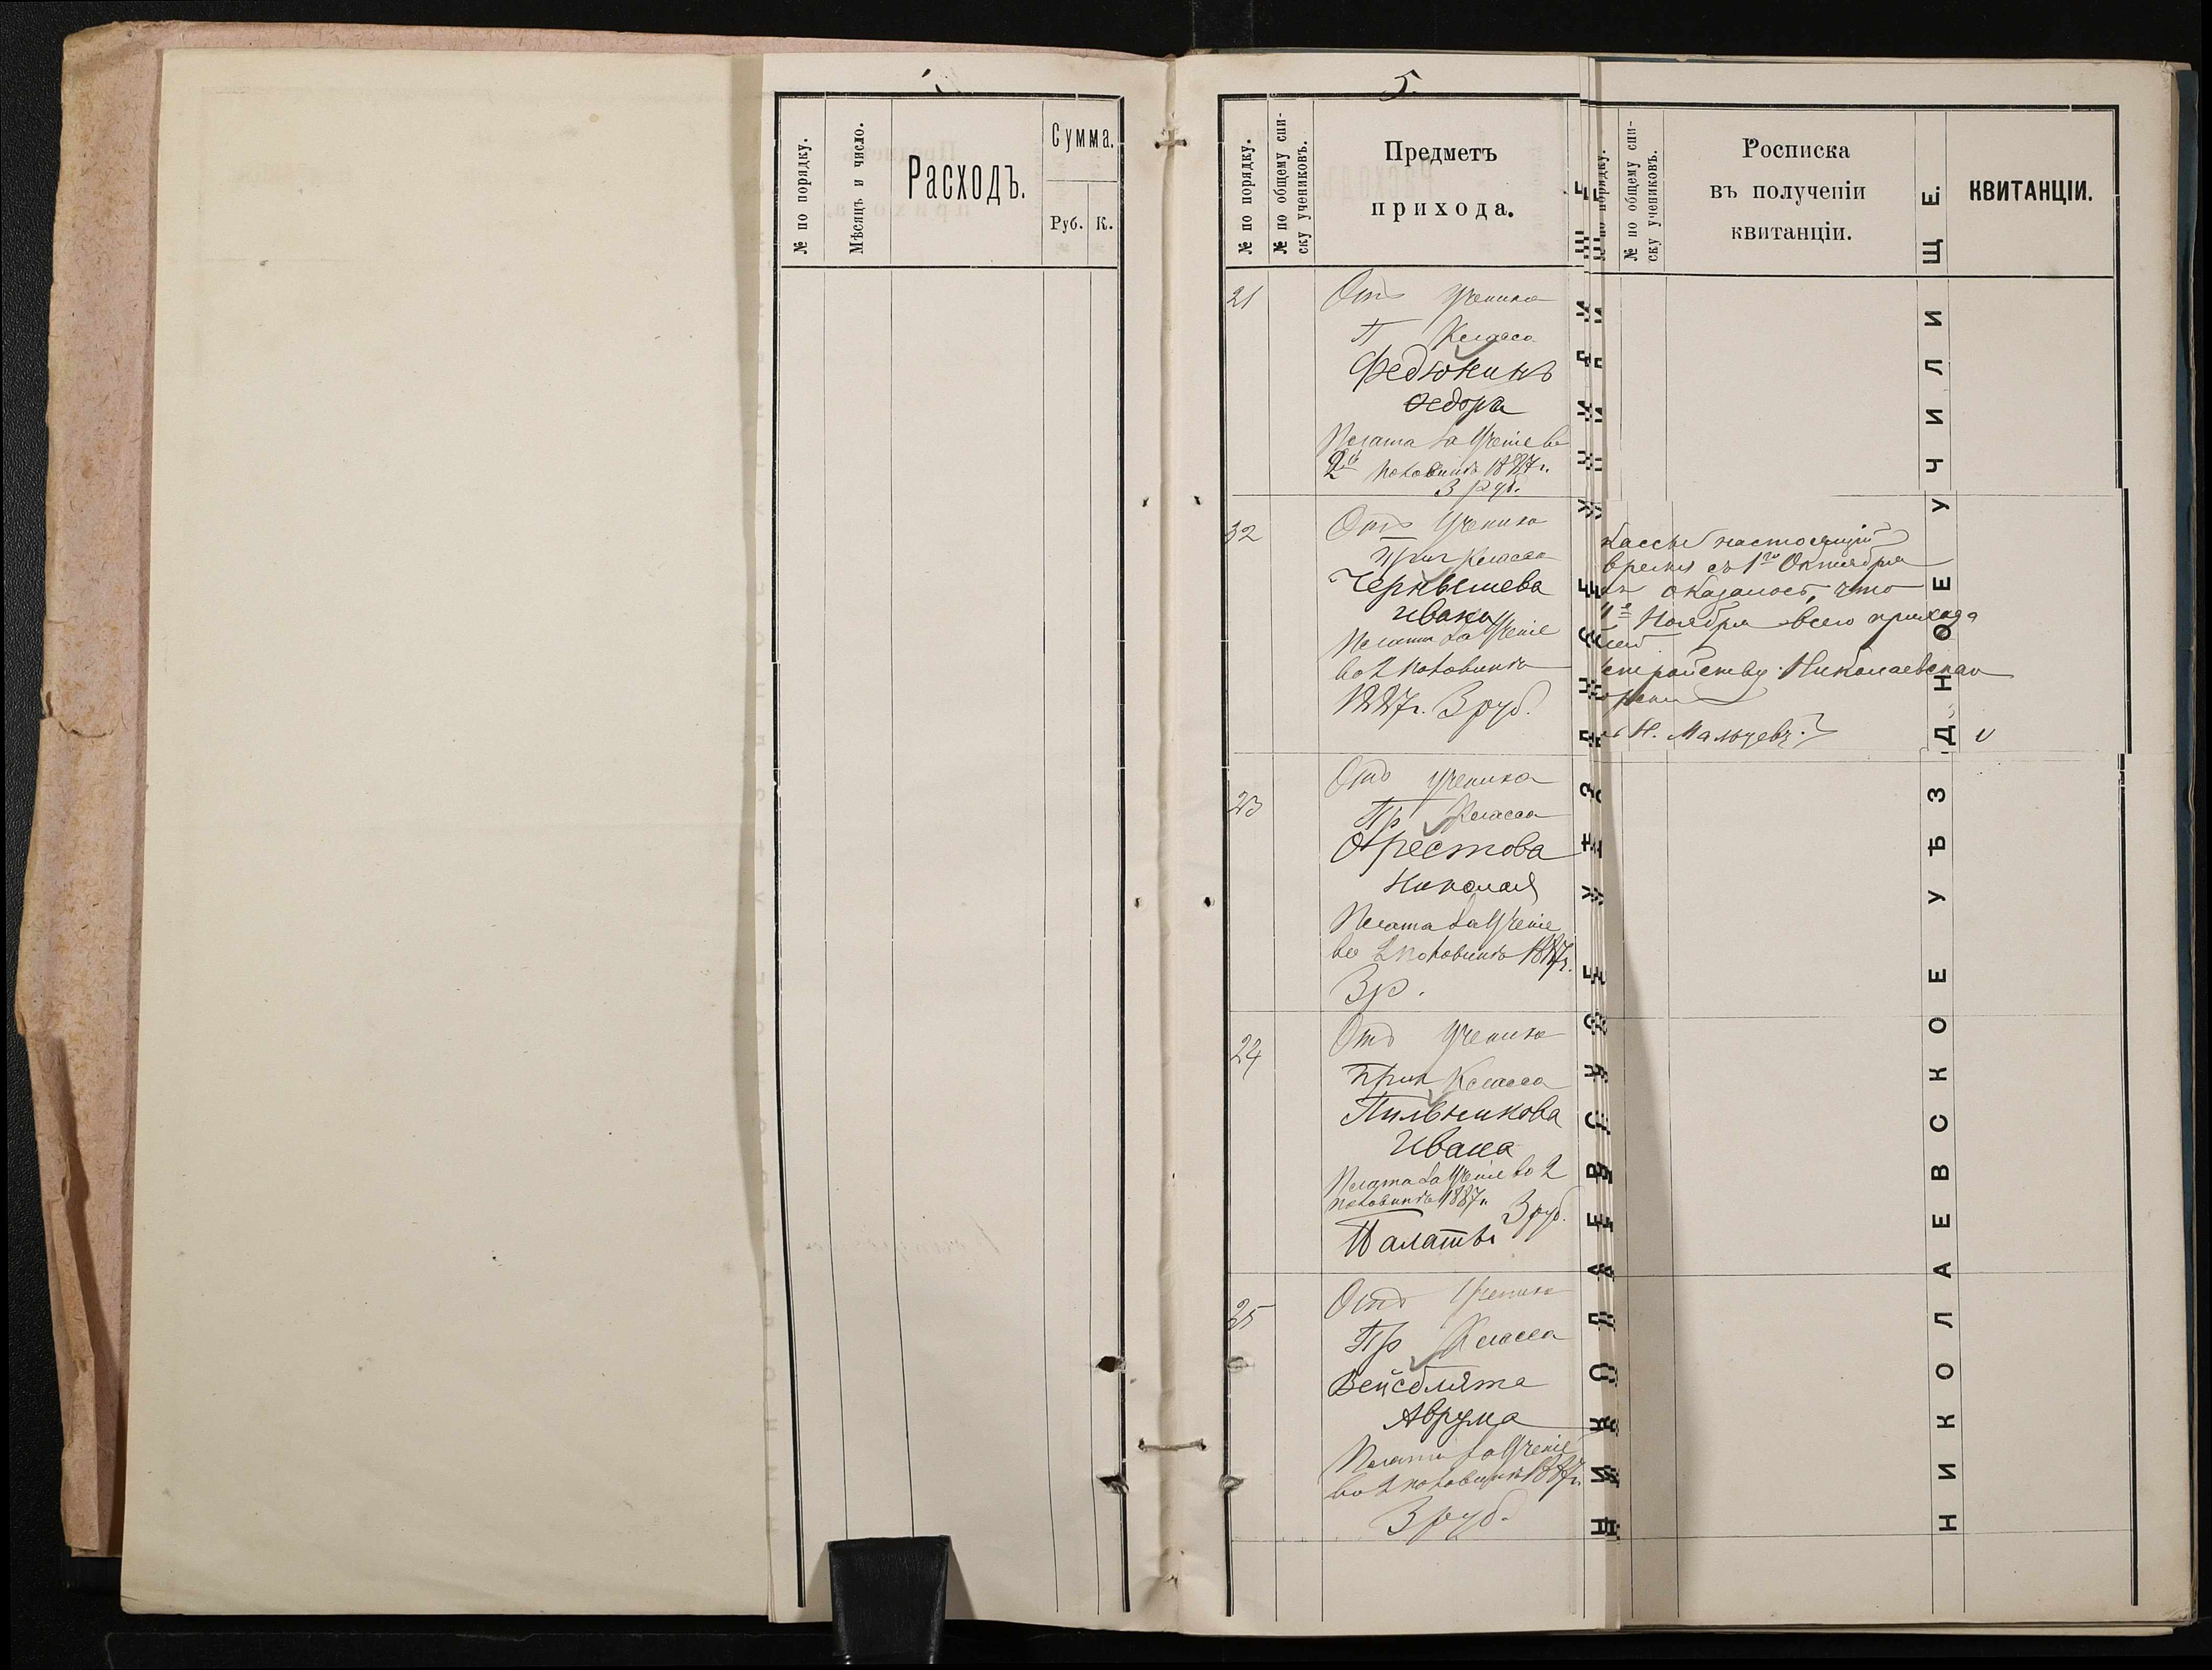 5.
№ по порядку.
Мѣсяцъ и число.
Расходъ.
Сумма.
Руб.
К.
№ по порядку.
№ по общему спи-
ску учениковъ.
Предметъ
прихода.
21
Отъ ученика
П Класса
Федюкинъ
Ѳедора
Плата за Ученіе во
2й половинѣ 1887 г.
3 руб.
32
Отъ Ученика
Приг Класса
Чернышева
Ивана
Плата за Ученіе
во 2 половинѣ
1887 г. 3 руб.
23
Отъ ученика
Пр Класса
Орестова
Николая
Плата за Ученіе
во 2 половинѣ 1887 г.
3 р.
24
Отъ Ученика
Приг Класса
Пильникова
Ивана
Плата за Ученіе во 2
половинѣ 1887 г. 3 руб.
Палаты
25
Отъ Ученика
Пр Класса
Вейсблята
Аврума
Плата за Ученіе
во 2 половинѣ 1887 г.
3 руб.
по порядку.
№ по общему спи-
ску учениковъ.
Росписка
въ полученіи
квитанціи.
кассы настоящій
время съ 1го Октября
оказалось, что
1е Ноября всего прихода
Николаевскаго
Н. Мальцевъ.
НИКОЛАЕВСКОЕ УѢЗДНОЕ УЧИЛИЩЕ.
КВИТАНЦІИ.